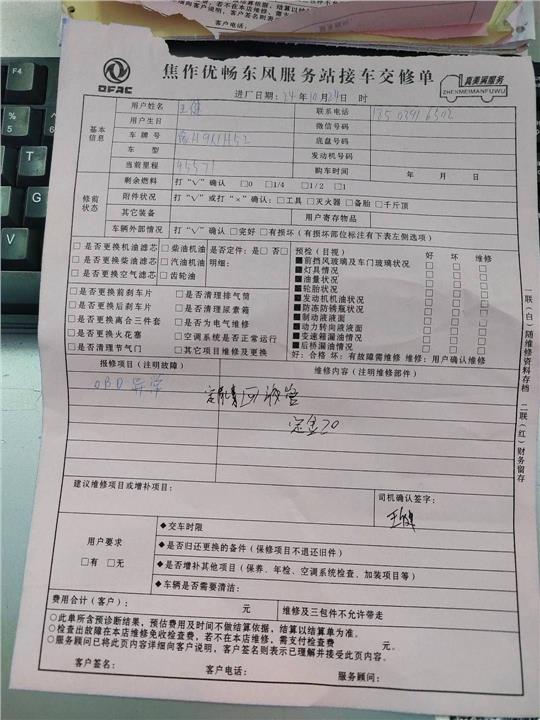 DFAC
焦作优畅东风服务站接车交修单
真美满服务
ZHENMEIMANFUWU
进厂日期：24年10月24日 时
基本信息
用户姓名 王健 联系电话
用户生日 微信号码
车牌号 豫H9X1H52 底盘号码
车型 发动机号码
当前里程 45571 购车时间 年 月 日
修前状态
剩余燃料 打“√”确认 □0 □1/4 □1/2 □1
附件状况 打“√”或打“×”确认：□工具 □灭火器 □备胎 □千斤顶
其它装备 用户寄存物品
车辆外部情况 打“√”确认 □完好 □有损坏（有损坏部位标注有下表左侧选项）
□是否更换机油滤芯 □柴油机油 是否定件：是□ 否□
□是否更换柴油滤芯 □汽油机油 明细：
□是否更换空气滤芯 □齿轮油
□是否更换前刹车片 □是否清理排气筒
□是否更换后刹车片 □是否清理尿素箱
□是否更换离合三件套 □是否为电气维修
□是否更换火花塞 □空调系统是否正常运行
□是否清理节气门 □其它项目维修及更换
预检（目视） 好 坏 维修
■前挡风玻璃及车门玻璃状况 □ □ □
■灯具情况 □ □ □
■油量状况 □ □ □
■轮胎状况 □ □ □
■发动机机油状况 □ □ □
■防冻防锈瓶状况 □ □ □
■制动液液面 □ □ □
■动力转向液液面 □ □ □
■变速箱漏油情况 □ □ □
■后桥漏油情况 □ □ □
好：合格 坏：有故障需维修 维修：用户确认维修
报修项目（注明故障） 维修内容（注明维修部件）
OBD异常
回液管
定金20
建议维修项目或增补项目：
司机确认签字：
王健
用户要求
□有 □无
◆交车时限
◆是否归还更换的备件（保修项目不退还旧件）
◆是否增补其他项目（保养、年检、空调系统检查、加装项目等）
◆车辆是否需要清洁：
费用合计（客户）： 元 维修及三包件不允许带走
○此单所含预诊断结果，预估费用及时间不做结算依据，结算以结算单为准。
○检查出故障在本店维修免收检查费，若不在本店维修，需支付检查费 元。
○服务顾问已将此页内容详细向客户说明，客户签名则表示已理解并接受此页内容。
客户签名： 客户电话： 服务顾问：
一联（白）随维修资料存档 二联（红）财务留存